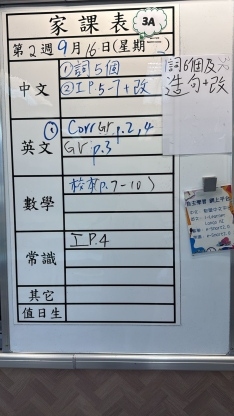 家課表 3A
第2週9月16日(星期一)
中文
①詞5個
②工P.5-7+改
詞6個及
造句+改
英文
① Corr Gr p.2,4
Gr p.3
數學
校本(p.7-10)
常識
工P.4
其它
值日生